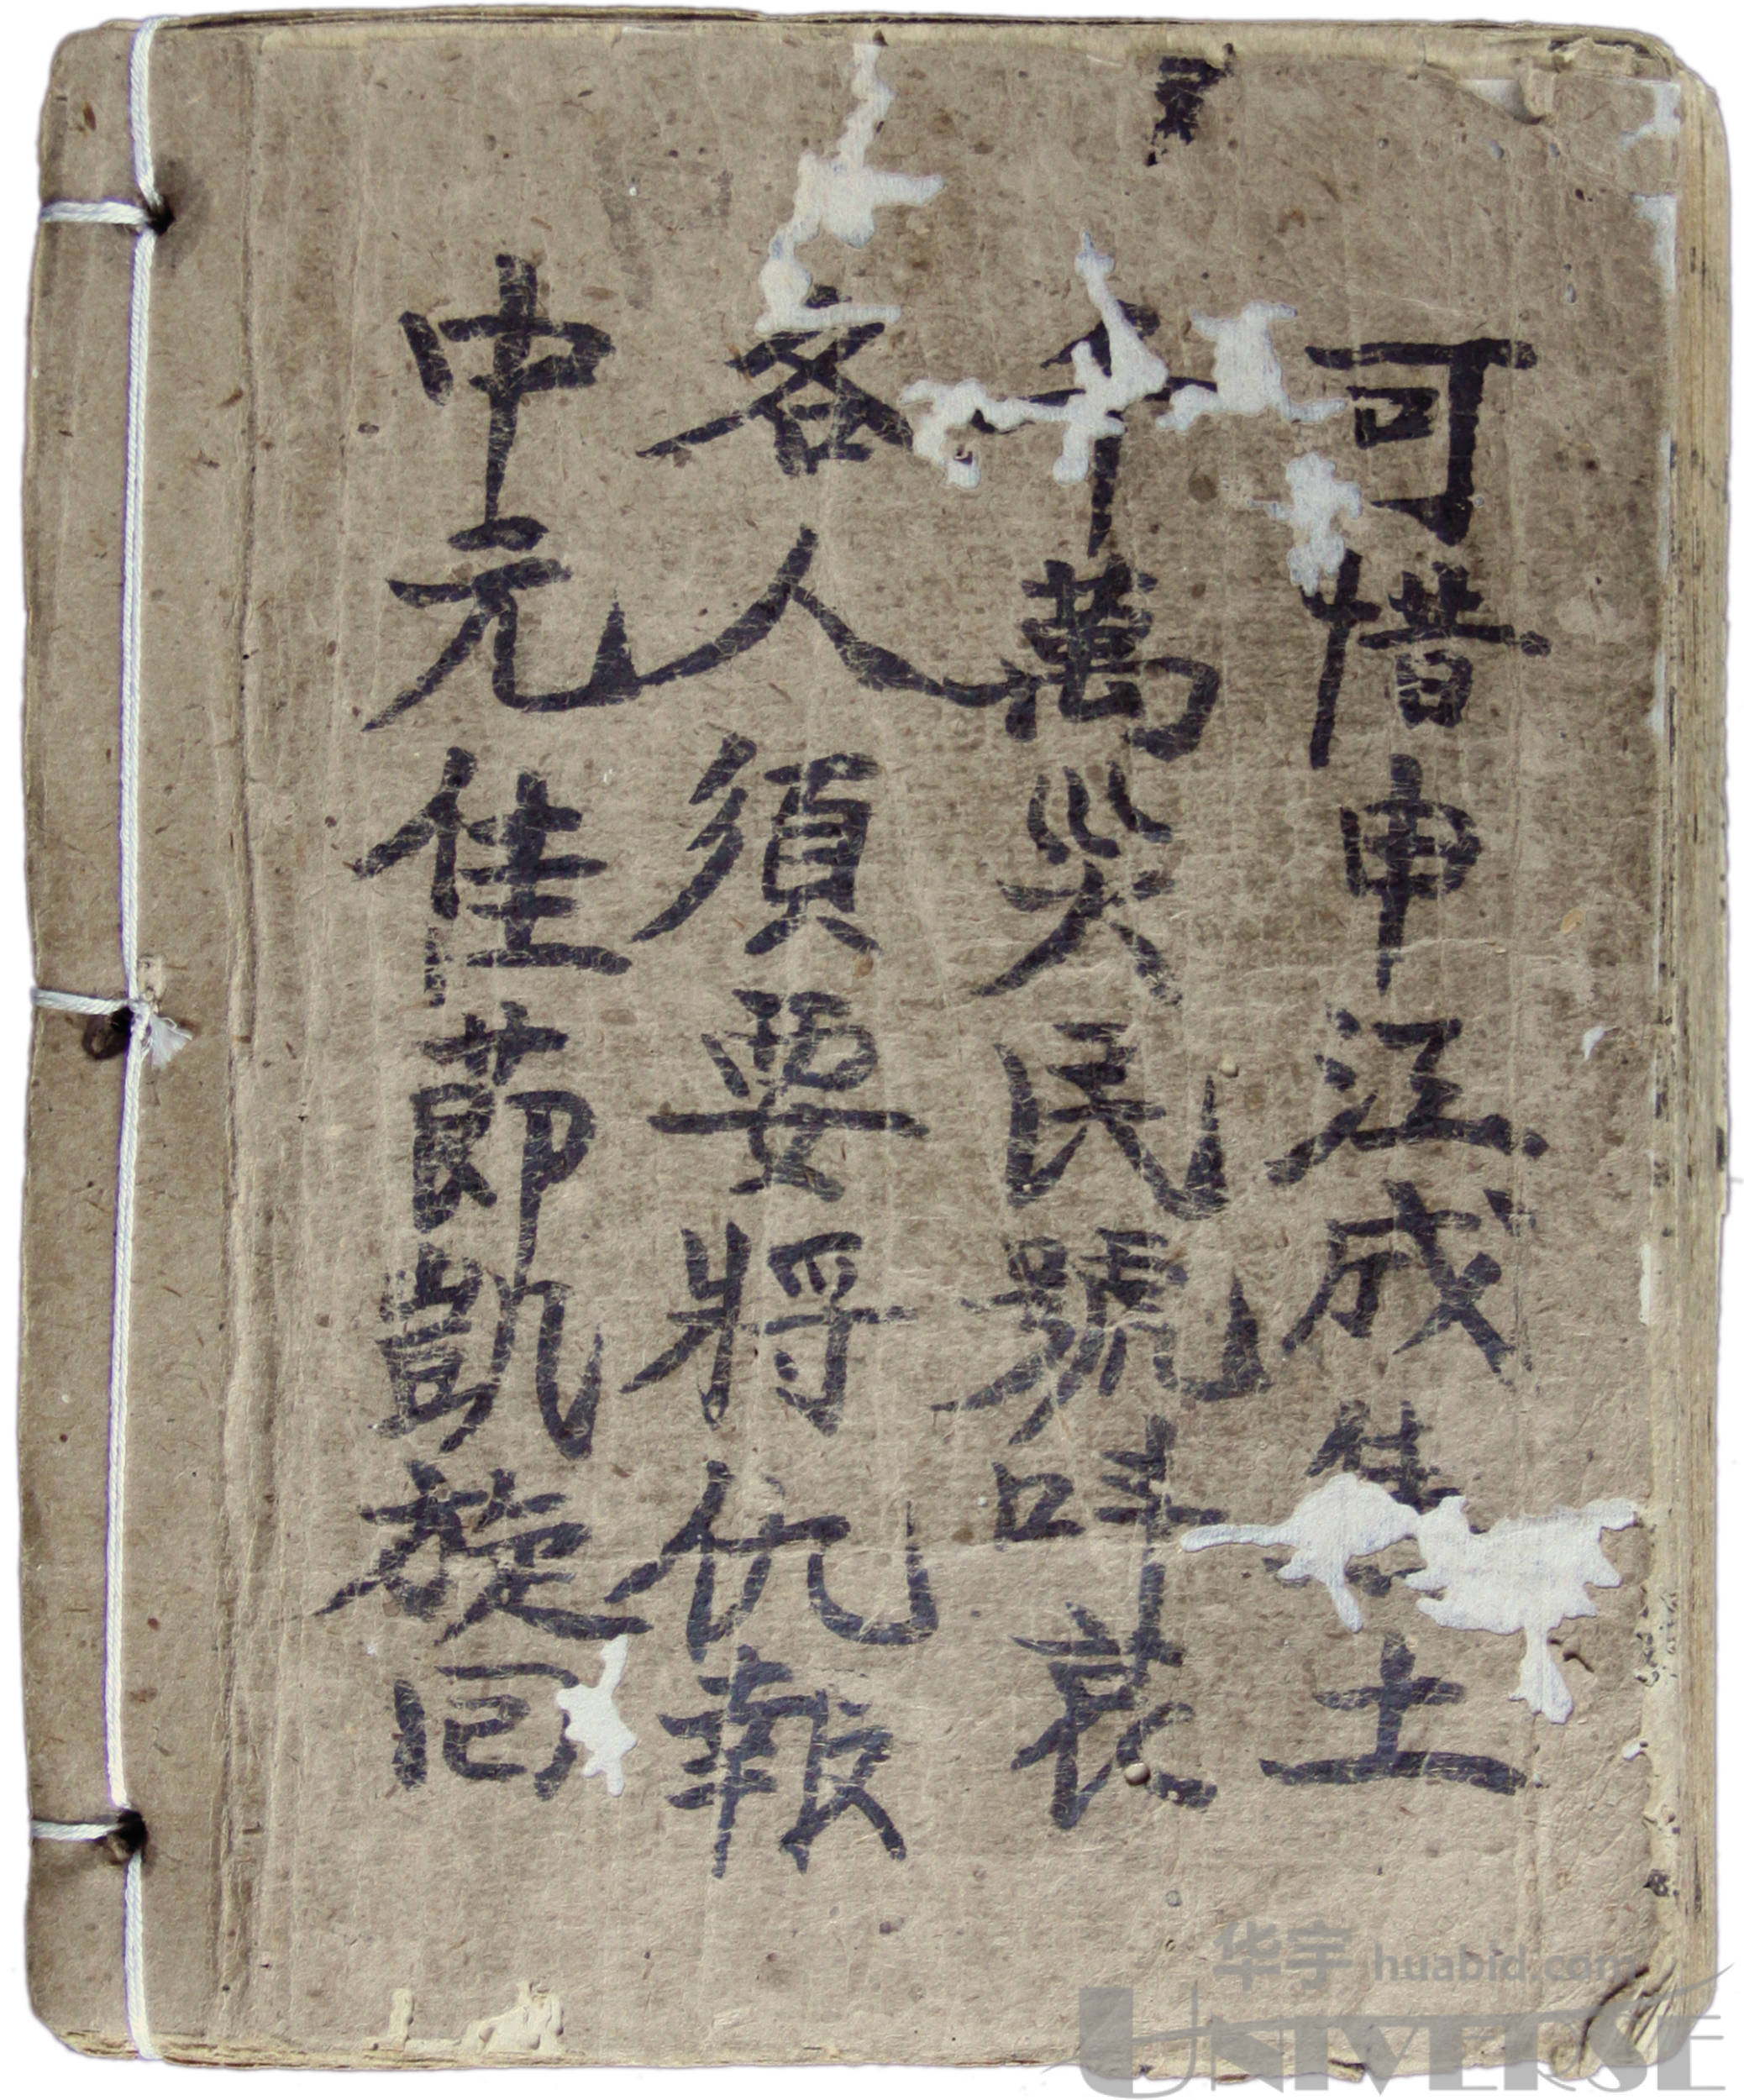 可惜申江成焦土
千萬災民號呌哀
各人須要將仇報
中元佳莭凱旋囘
华宇 huabid.com
UNIVERSE